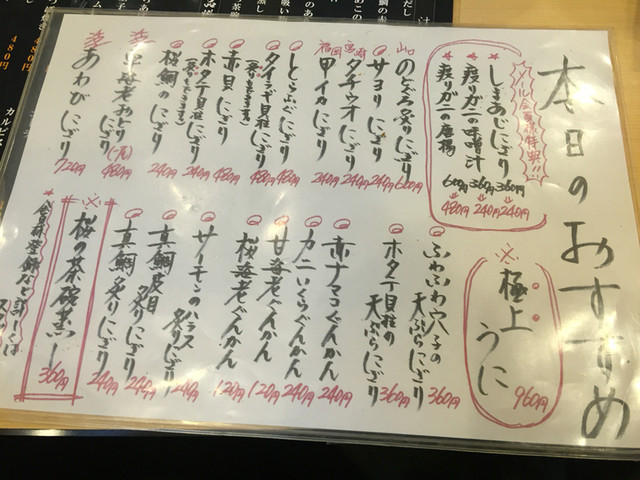 本日のおすすめ
メール会員様特典!!
しまあじにぎり 360円⇒240円
渡りガニの味噌汁 360円⇒240円
渡りガニの唐揚 600円⇒480円
※極上うに 960円
山口 のどぐろ炙りにぎり 600円
サヨリにぎり 240円
宮崎 タチウオにぎり 240円
福岡 甲イカにぎり 240円
しゃぶにぎり
タイラギ貝柱にぎり 480円
赤貝にぎり 480円
ホタテ貝柱にぎり 240円
桜鯛にぎり 240円
活 車海老おどり(一尾) 480円
活 あわびにぎり 720円
ふわふわ穴子の天ぷらにぎり 360円
ホタテ貝柱の天ぷらにぎり 360円
赤ナマコぐんかん 240円
カニいくらぐんかん 240円
甘海老ぐんかん 120円
桜海老ぐんかん 120円
サーモンのハラス炙りにぎり 240円
真鯛皮目炙りにぎり 240円
真鯛炙りにぎり 240円
※桜の茶碗蒸し 360円
会員登録など詳しくは